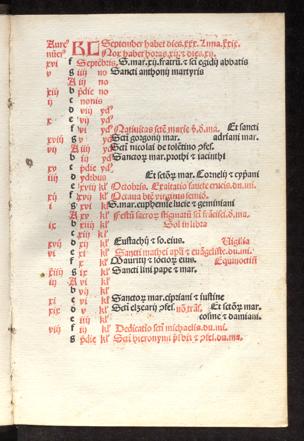 Aure⁹ KL September habet dies.xxx. Luna.xxix.
nũerꝰ Nox habet horas.xij. ⁊ dies.xij.
xvi f Septẽbris. S.mar.xij.fratrũ.⁊ sci egidij abbatis
v g iiij no Sancti anthonij martyris
A iij no
xiij b ij no
ij c nonis
d viij yd⁹
x e vij yd⁹
f vi yd⁹ Natiuitas scẽ marie v̄.d̄.ma. Et sancti
xviij g v yd⁹ Scti gorgonij mar. adriani mar.
vij A iiij yd⁹ Scti nicolai de tolẽtino ꝯfes.
b iij yd⁹ Sanctoꝝ mar.prothi ⁊ iacinthi
xv c ij yd⁹
iiij d ydibus Et sctoꝝ mar. Cornelij ⁊ cypani
e xviij kl⁹ Octobris. Exaltatio sancte crucis.du.mi.
xij f xvij kl⁹ Octaua btẽ virginis semiō.
i g xvi kl⁹ S.mar.euphemie lucie ⁊ geminiani
A xv kl⁹ Festũ sacroꝝ stigmatũ scti frãcisci.d̄.ma.
ix b xiiij kl⁹ Sol in libra
c xiij kl⁹
xvij d xij kl⁹ Eustachij ⁊ so.eius. Uigilia
vi e xi kl⁹ Sancti mathei apli ⁊ euãgeliste.du.mi.
f x kl⁹ Mauritij ⁊ socioꝝ eius. Equinoctiũ
xiiij g ix kl⁹ Sancti lini pape ⁊ mar.
iij A viij kl⁹
b vij kl⁹
xi c vi kl⁹ Sanctoꝝ mar.cipriani ⁊ iustine
d v kl⁹ Scti elzearij ꝯfes. Et sctoꝝ mar.
xix e iiij kl⁹ cosme ⁊ damiani.
viij f iij kl⁹ Dedicatio scti michaelis.du.mi.
g pdie kl⁹ Scti hieronymi p̃sbri ⁊ ꝯfes.du.ma.